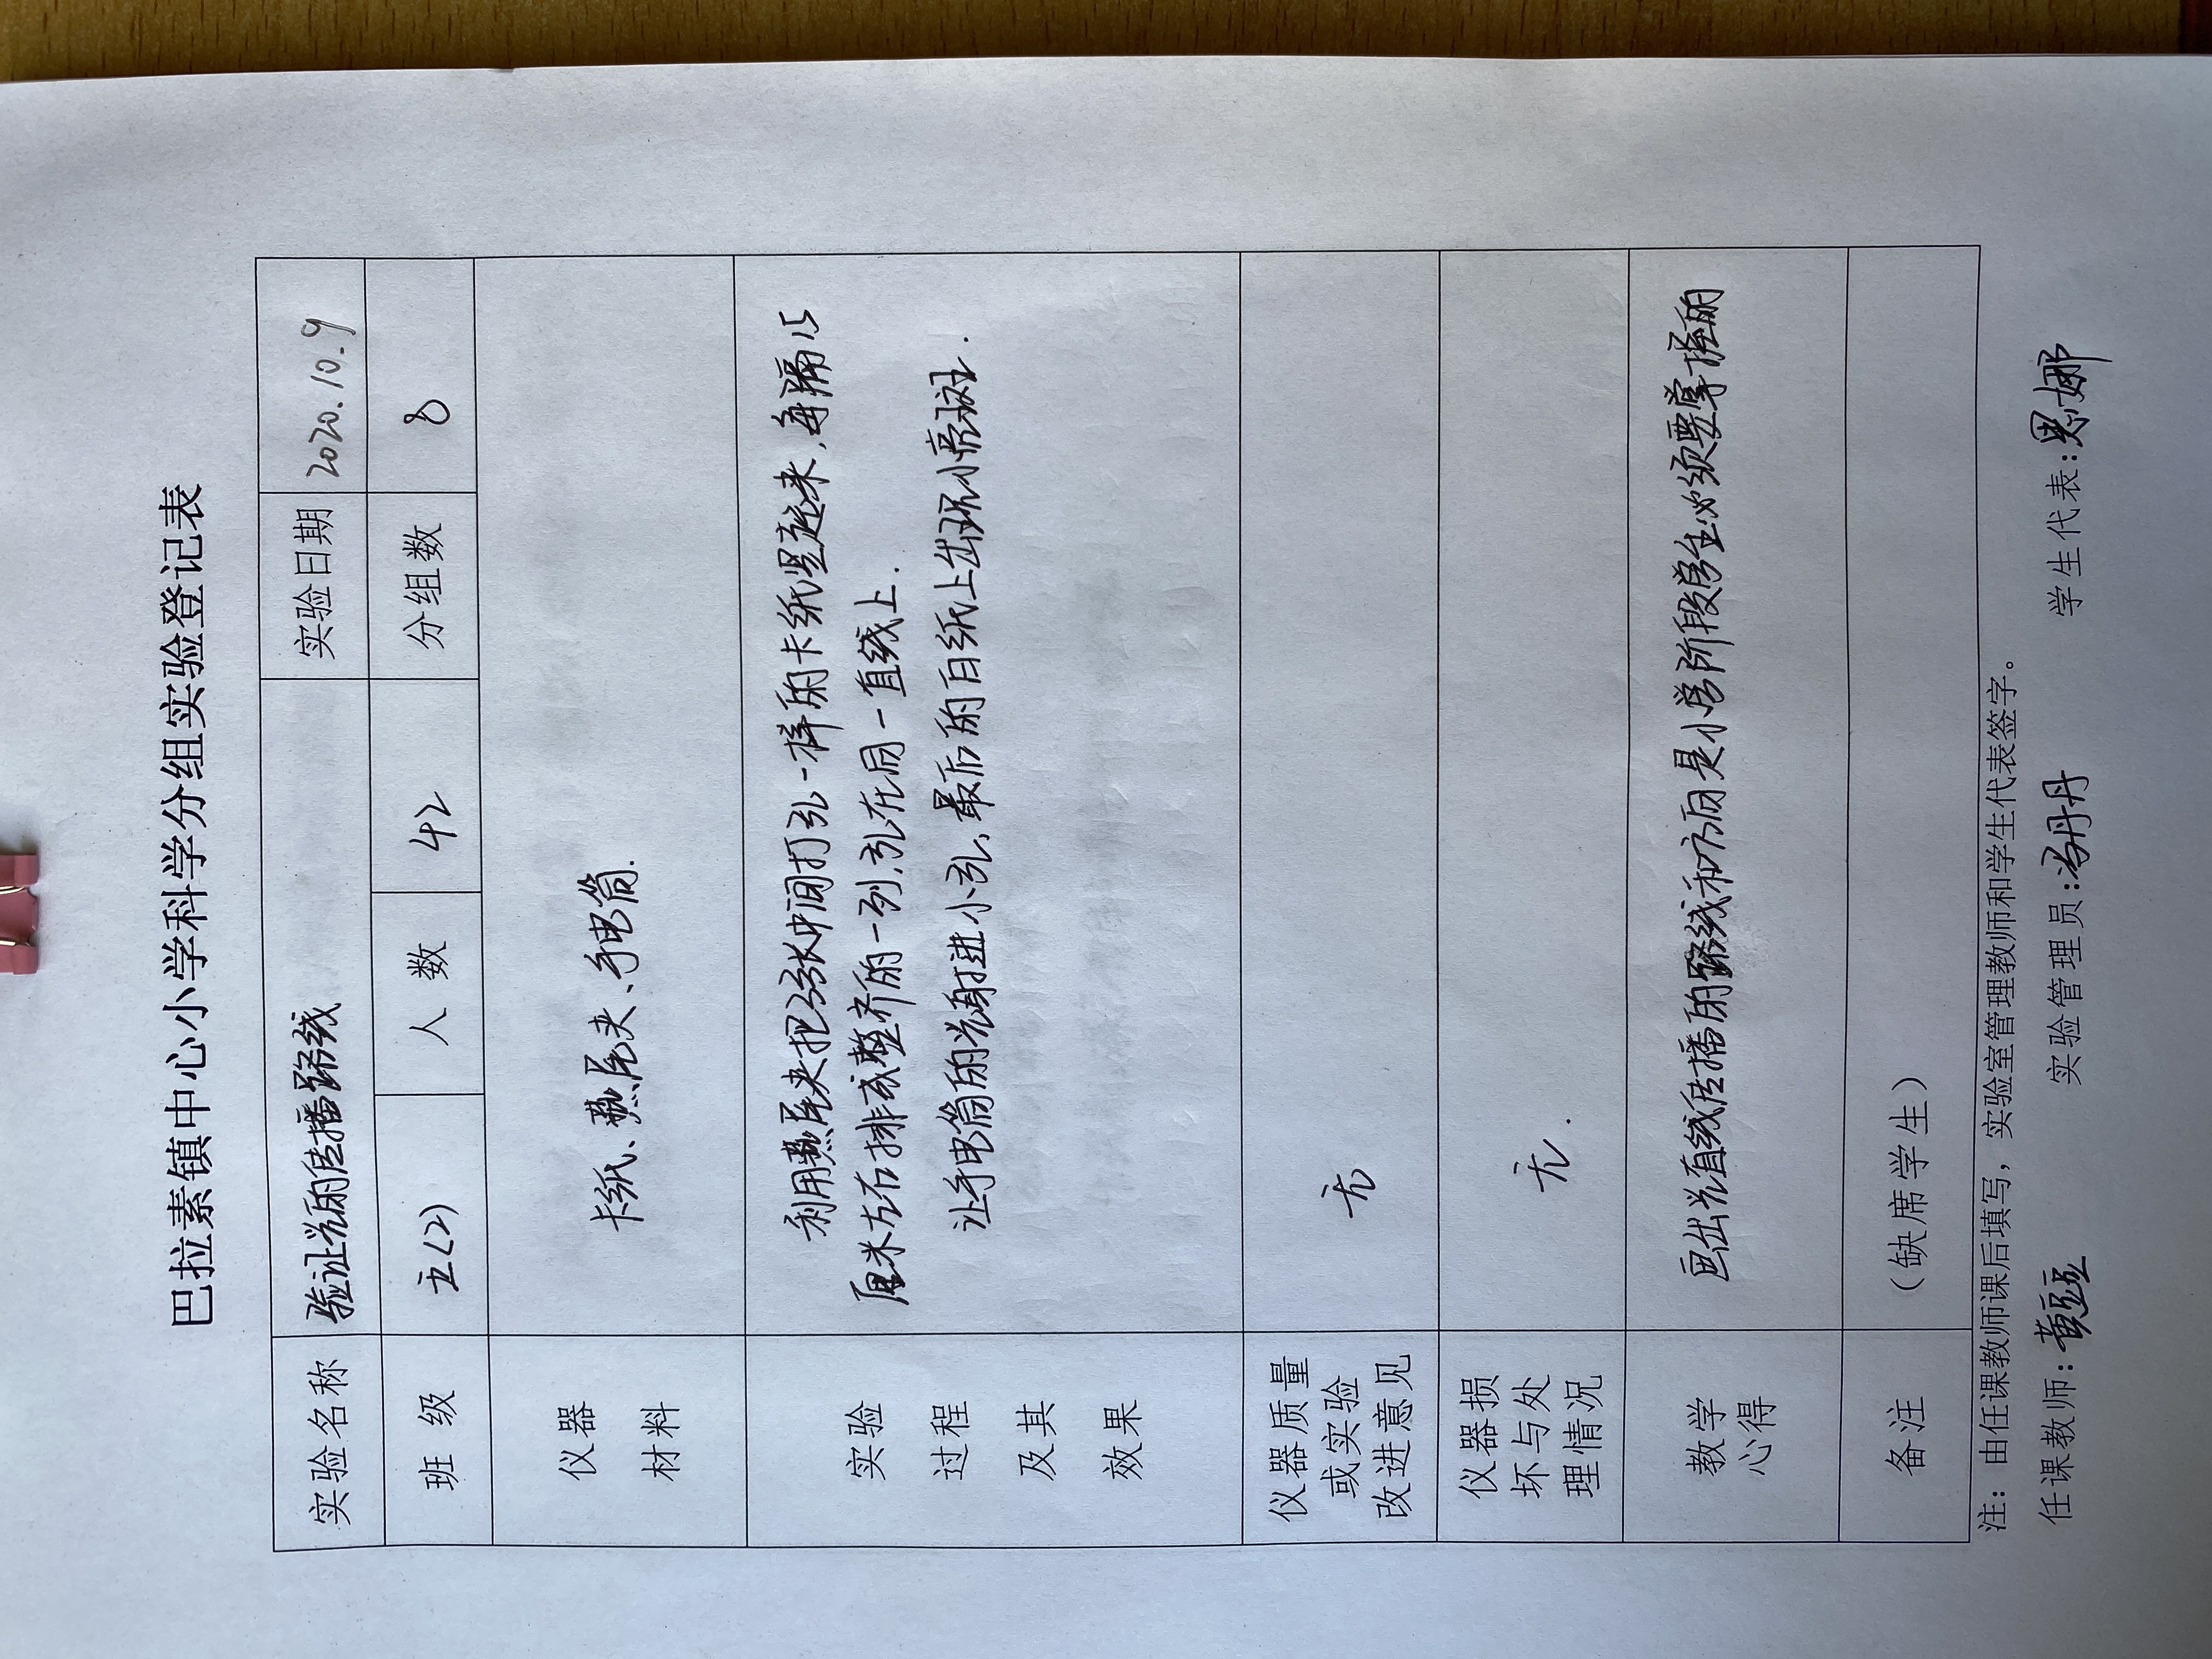 巴拉素镇中心小学科学分组实验登记表
实验名称 验证光的传播路线 实验日期 2020.10.9
班 级 五(2) 人 数 42 分组数 8
仪器
材料
卡纸、燕尾夹、手电筒.
实验
过程
及其
效果
利用燕尾夹把3张中间打孔一样的卡纸竖起来,每隔15
厘米左右排成整齐的一列,孔在同一直线上.
让手电筒的光射进小孔、最后的白纸上出现小亮斑.
仪器质量
或实验
改进意见
无
仪器损
坏与处
理情况
无.
教学
心得
画出光直线传播的路线和方向是小学阶段学生必须要掌握的
备注
（缺席学生）
注：由任课教师课后填写，实验室管理教师和学生代表签字。
任课教师：黄豆豆 实验管理员：丹丹 学生代表：思娜